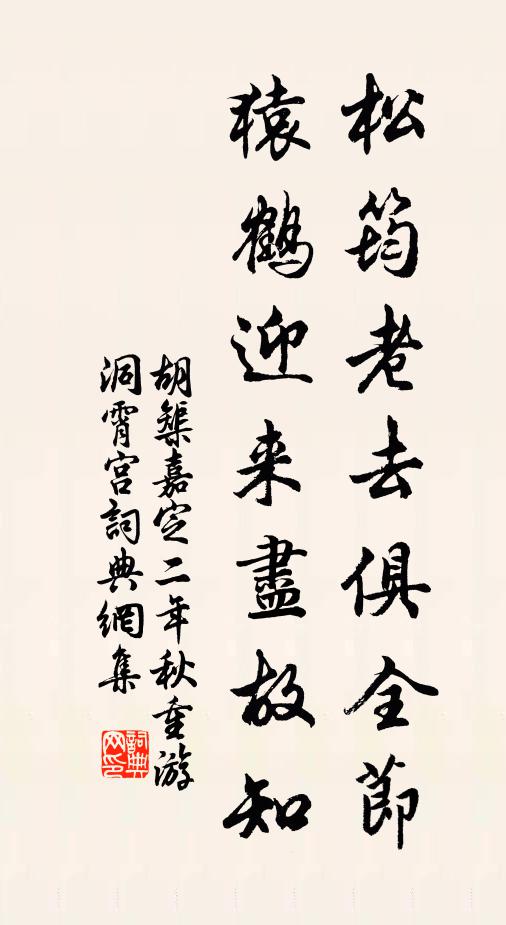 松筠老去俱全節
猿鶴迎来盡故知
胡榘嘉定二年秋重游
洞霄宫詞典網集
詞典网印